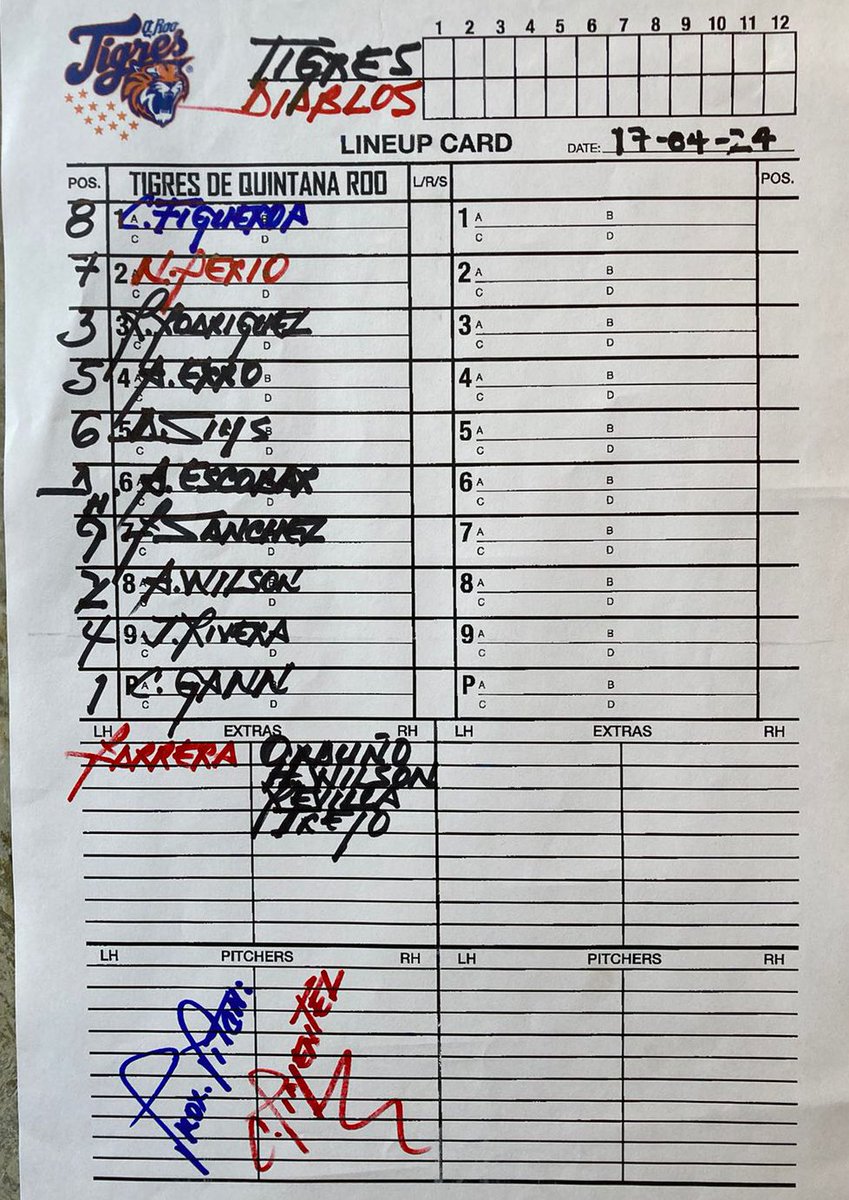 Q. Roo
Tigres
TIGRES
DIABLOS
1 2 3 4 5 6 7 8 9 10 11 12
LINEUP CARD
DATE: 17-04-24
POS. TIGRES DE QUINTANA ROO L/R/S POS.
8 1 A C. FIGUEROA B 1 A B
C D C D
7 2 N. PERIO 2 A B
C D C D
3 3 R. RODRIGUEZ 3 A B
C D C D
5 4 A. ERRO B 4 A B
C D C D
6 5 B 5 A B
C D C D
6 A. ESCOBAR 6 A B
D C D
9 7 F. SANCHEZ 7 A B
C D C D
2 8 A. WILSON B 8 A B
C D C D
4 9 A J. RIVERA 9 A B
C D C D
1 P A C. GANN P A B
C D C D
LH EXTRAS RH LH EXTRAS RH
BARRERA ORDUÑO
H. WILSON
REVILLA
TREJO
LH PITCHERS RH LH PITCHERS RH
PROX. PITCH:
C. PIMENTEL